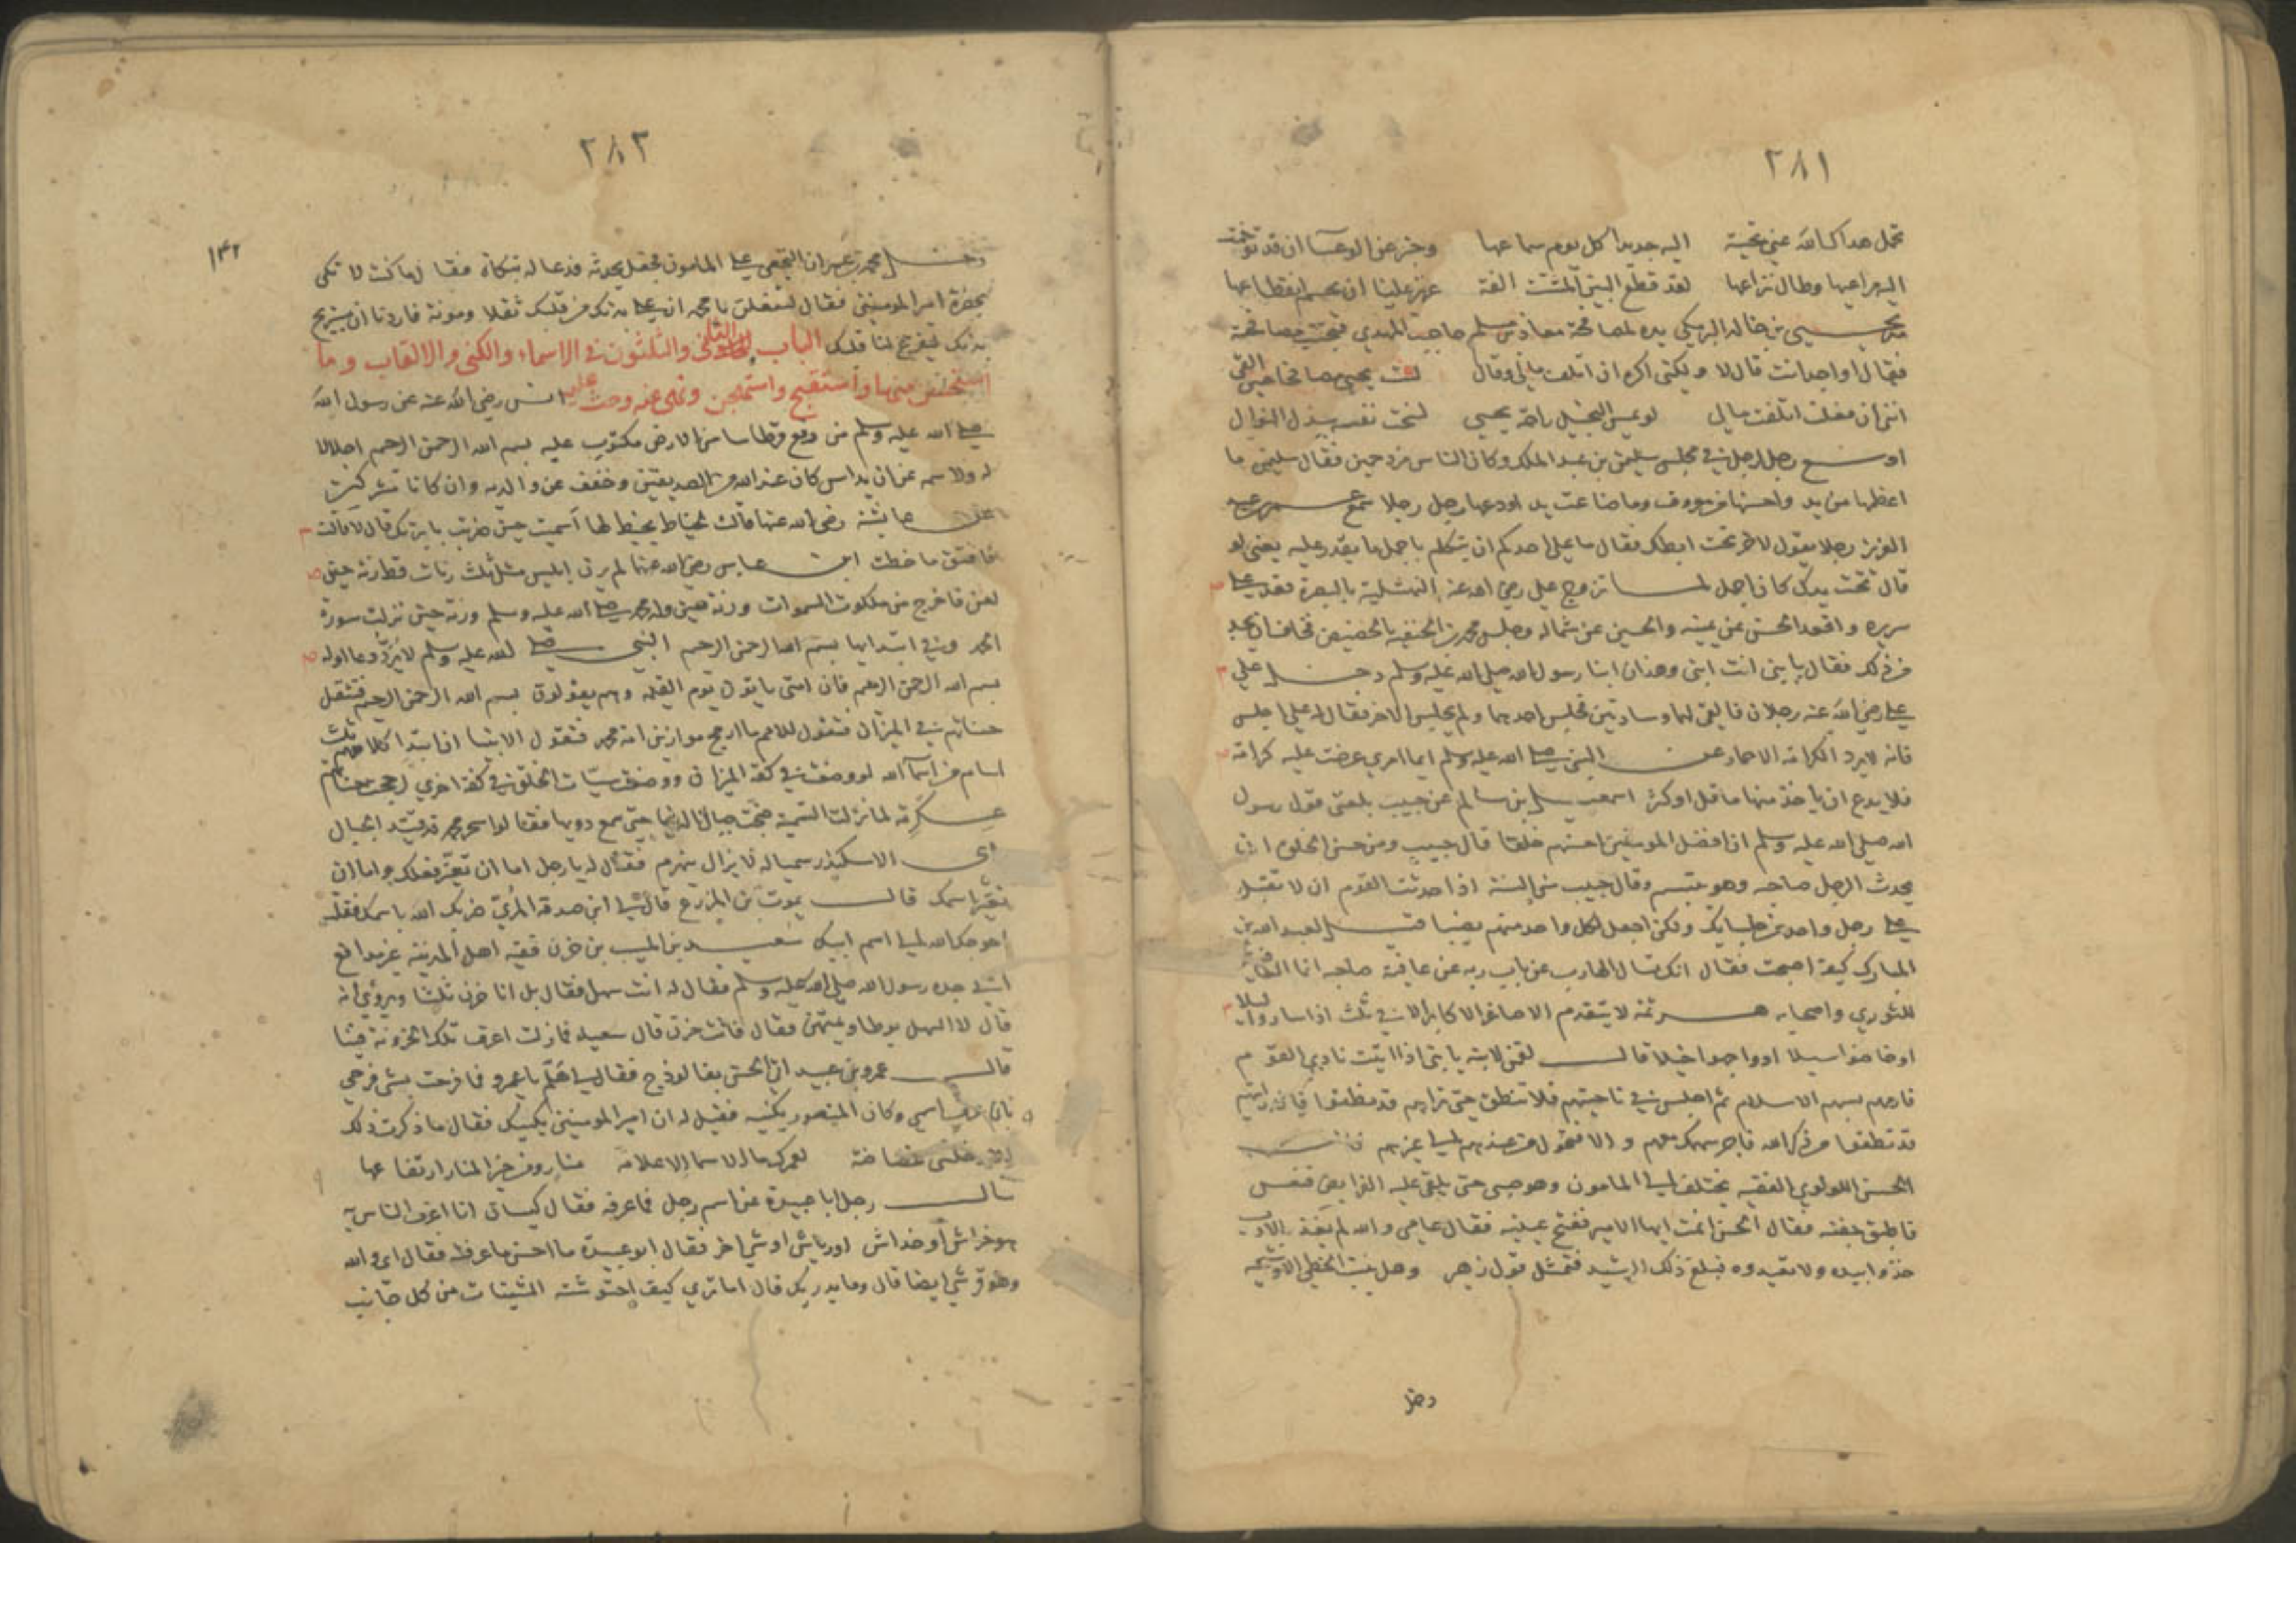 ٢٨١
تحمل هداك الله عني تحية اليه جديدا كل يوم سماعها وخبر عن الوعسا ان قد توخمت
اليه مراعيها وطال نزاعها لقد قطع البين المشتت الفة عزيز علينا ان يحم انقطاعها
مد يحيى بن خالد البرمكي يده لمصافحة معاذ بن مسلم حاجب المهدي فتجنب مصافحته
فقال اواجد انت قال لا ولكني اكره ان اتلف مالي وقال لست يحيى مصافحا حين القى
انني ان فعلت اتلفت مالي لو يمس البخيل راحة يحيى لسخت نفسه ببذل النوال
اوسع رجل لرجل في مجلس سليمن بن عبد الملك وكان الناس مزدحمين فقال سليمن ما
اعظمها من يد واحسنها من معروف وما ضاعت يد اودعها رجل رجلا سمع عمر بن عبد
العزيز رجلا يقول لاخر تحت ابطك فقال ما على احدكم ان يتكلم باجمل ما يقدر عليه يعني لو
قال تحت يدك كان اجمل لما تزوج علي رضي الله عنه النهشلية بالبصرة قعد على
سريره واقعد الحسن عن يمينه والحسين عن شماله وجلس محمد بن الحنفية بالحضيض فخاف ان يجد
من ذلك فقال يا بني انت ابني وهذان ابنا رسول الله صلى الله عليه وسلم دخل على
علي رضي الله عنه رجلان فالقى لهما وسادتين فجلس احدهما ولم يجلس الاخر فقال له علي اجلس
فانه لا يرد الكرامة الا حمار عن النبي صلى الله عليه وسلم ايما امرئ عرضت عليه كرامة
فلا يدع ان ياخذ منها ما قل او كثر اسمعيل بن سالم عن حبيب بلغني قول رسول
الله صلى الله عليه وسلم ان افضل المومنين احسنهم خلقا قال حبيب ومن حسن الخلق ان
يحدث الرجل صاحبه وهو يبتسم وقال حبيب من السنة اذا حدثت القوم ان لا تقبل
على رجل واحد من جلسايك ولكن اجعل لكل واحد منهم نصيبا قيل لعبد الله بن
المبارك كيف اصبحت فقال انك تسال الهارب عن باب ربه عن عافية صاحبه انما العافية
للثوري واصحابه هرثمة لا يتقدم الاصاغر الاكابر الا في ثلث اذا ساروا ليلا
او خاضوا سيلا او واجهوا خيلا قال لقمن لابنه يا بني اذا اتيت نادي القوم
فارمهم بسهم الاسلام ثم اجلس في ناحيتهم فلا تنطق حتى تراهم قد نطقوا فان رايتهم
قد نطقوا في ذكر الله فاجر سهمك معهم والا فتحول من عندهم الى غيرهم كان
الحسن اللولوي الفقيه يختلف الى المامون وهو صبي حتى يلقي عليه الفرايض فنعس
فاطبق جفنه فقال الحسن انمت ايها الامير ففتح عينيه فقال عامي والله لم يغذ بالادب
خذوا بيده ولا تعيدوه فبلغ ذلك الرشيد فتمثل قول زهير وهل ينبت الخطي الا وشيجه
دخل
٢٨٢
١٤٢
دخل محمد بن عمران التيمي على المامون فجعل يحدثه فدعا له بتكاة فقال ما كنت لا تكى
بحضرة امير المومنين فقال لتفعلن يا محمد ان على بدنك من قلبك ثقلا ومونة فاردنا ان يستريح
بدنك ليفرغ لنا قلبك الباب الثاني والثلثون في الاسماء والكنى والالقاب وما
استحسن منها واستقبح واستهجن ونهي عنه وحث عليه انس رضي الله عنه عن رسول الله
صلى الله عليه وسلم من رفع قرطاسا من الارض مكتوب عليه بسم الله الرحمن الرحيم اجلالا
له ولاسمه عن ان يداس كان عند الله من الصديقين وخفف عن والديه وان كانا مشركين
عن عايشة رضي الله عنها قالت لخياط يخيط لها اسميت حين ضربت بابرتك قال لا قالت
فافتق ما خطت ابن عباس رضي الله عنهما لم يرن ابليس مثل ثلث رنات قط رنة حين
لعن فاخرج من ملكوت السموات ورنة حين ولد محمد صلى الله عليه وسلم ورنة حين نزلت سورة
الحمد وفي ابتدايها بسم الله الرحمن الرحيم النبي صلى الله عليه وسلم لا يرد دعا اوله
بسم الله الرحمن الرحيم فان امتي ياتون يوم القيمة وهم يقولون بسم الله الرحمن الرحيم فتثقل
حسناتهم في الميزان فتقول الامم ما ارجح موازين امة محمد فتقول الانبيا ان ابتدا كلامهم ثلثة
اسام من اسما الله لو وضعت في كفة الميزان ووضعت سيات الخلق في كفة اخرى لرجحت حسناتهم
عكرمة لما نزلت التسمية ضجت جبال الدنيا حتى سمع دويها فقالوا سحر محمد الجبال
راى الاسكندر سميا له لا يزال ينهزم فقال له يا رجل اما ان تغير فعلك واما ان
تغير اسمك قال يموت بن المزرع قال لي ابن صدقة المري ضربك الله باسمك فقلت
احوجك الله الى اسم ابيك سعيد بن المسيب بن حزن فقيه اهل المدينة غير مدافع
اتى جده رسول الله صلى الله عليه وسلم فقال له انت سهل فقال بل انا حزن ثلثا ويروى انه
قال لا السهل يوطا ويمتهن فقال فانت حزن قال سعيد فما زلت اعرف تلك الحزونة فينا
قال عمرو بن عبيد اتي الحسن بفالوذج فقال لي هلم يا عمرو فما فرحت بشي فرحي
بان عرف اسمي وكان المنصور يكنيه فقيل له ان امير المومنين يكنيك فقال ما ذكرت ذلك
الا دخلتني غضاضة لعمرك ما الاسما الا علامة منار ومن خير المنار ارتفاعها
سال رجل ابا عبيدة عن اسم رجل فما عرفه فقال كيسان انا اعرف الناس به
هو خراش او خداش او رياش او شي اخر فقال ابو عبيدة ما احسن ما عرفته فقال اي والله
وهو قرشي ايضا قال وما يدريك قال اما ترى كيف احتوشته الشينات من كل جانب